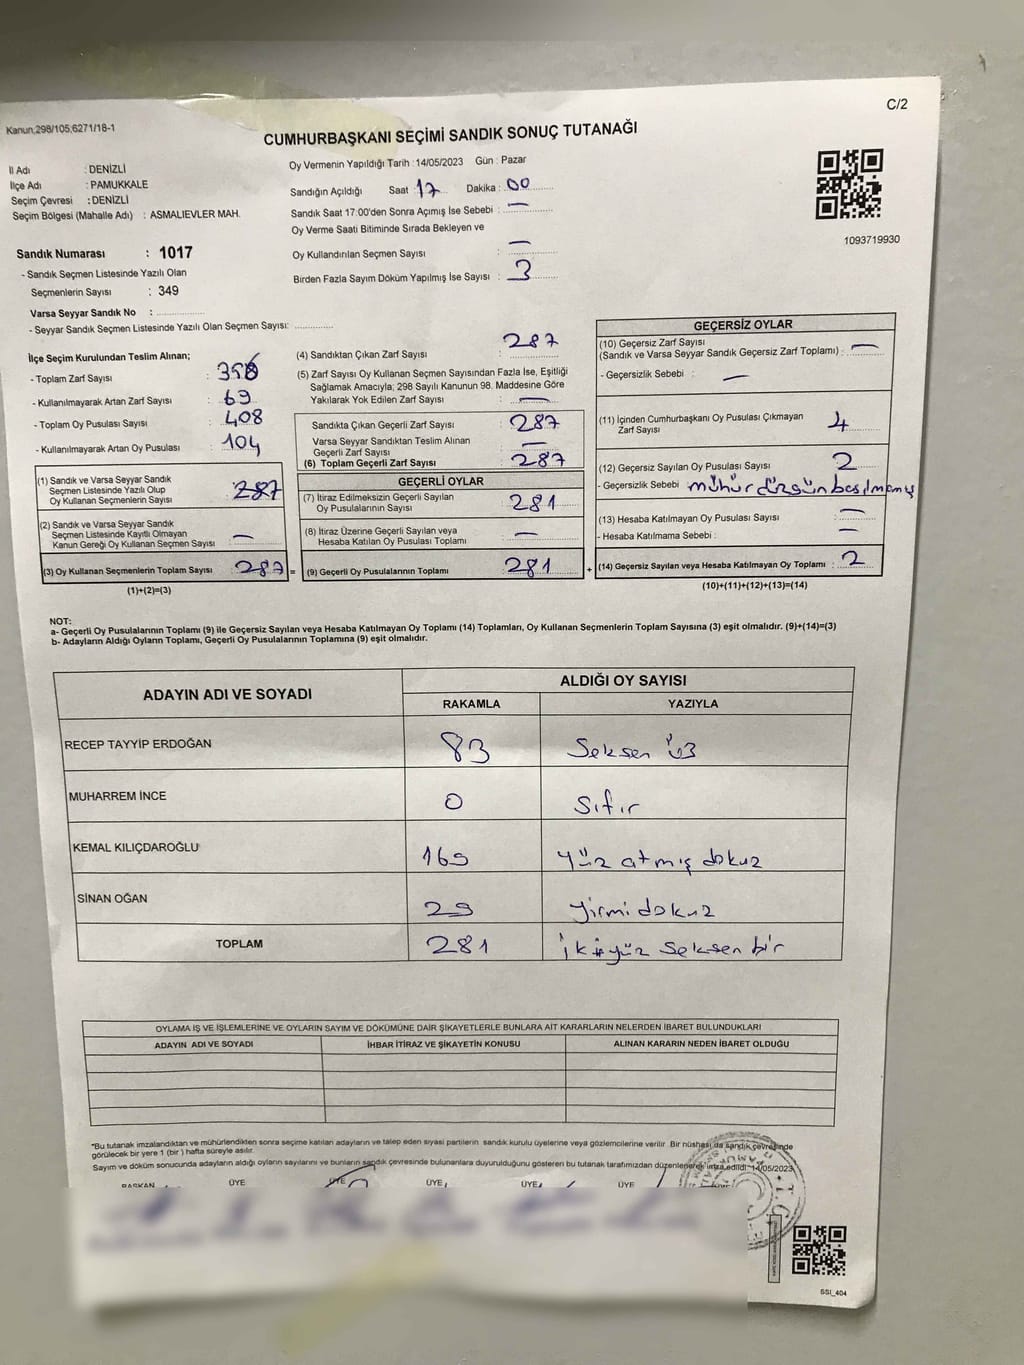 C/2
Kanun,298/105,6271/18-1
CUMHURBAŞKANI SEÇİMİ SANDIK SONUÇ TUTANAĞI
İl Adı : DENİZLİ
İlçe Adı : PAMUKKALE
Seçim Çevresi : DENİZLİ
Seçim Bölgesi (Mahalle Adı) : ASMALIEVLER MAH.
Oy Vermenin Yapıldığı Tarih : 14/05/2023 Gün : Pazar
Sandığın Açıldığı Saat 17 Dakika : 00
Sandık Saat 17:00'den Sonra Açımış İse Sebebi : —
Oy Verme Saati Bitiminde Sırada Bekleyen ve
Oy Kullandırılan Seçmen Sayısı : —
Birden Fazla Sayım Döküm Yapılmış İse Sayısı : 3
1093719930
Sandık Numarası : 1017
- Sandık Seçmen Listesinde Yazılı Olan
Seçmenlerin Sayısı : 349
Varsa Seyyar Sandık No :
- Seyyar Sandık Seçmen Listesinde Yazılı Olan Seçmen Sayısı:
İlçe Seçim Kurulundan Teslim Alınan;
- Toplam Zarf Sayısı :
- Kullanılmayarak Artan Zarf Sayısı : 69
- Toplam Oy Pusulası Sayısı : 408
- Kullanılmayarak Artan Oy Pusulası : 104
(1) Sandık ve Varsa Seyyar Sandık
Seçmen Listesinde Yazılı Olup
Oy Kullanan Seçmenlerin Sayısı : 287
(2) Sandık ve Varsa Seyyar Sandık
Seçmen Listesinde Kayıtlı Olmayan
Kanun Gereği Oy Kullanan Seçmen Sayısı : —
(3) Oy Kullanan Seçmenlerin Toplam Sayısı : 287 =
(1)+(2)=(3)
(4) Sandıktan Çıkan Zarf Sayısı : 287
(5) Zarf Sayısı Oy Kullanan Seçmen Sayısından Fazla İse, Eşitliği
Sağlamak Amacıyla; 298 Sayılı Kanunun 98. Maddesine Göre
Yakılarak Yok Edilen Zarf Sayısı : —
Sandıkta Çıkan Geçerli Zarf Sayısı : 287
Varsa Seyyar Sandıktan Teslim Alınan
Geçerli Zarf Sayısı : —
(6) Toplam Geçerli Zarf Sayısı : 287
GEÇERLİ OYLAR
(7) İtiraz Edilmeksizin Geçerli Sayılan
Oy Pusulalarının Sayısı : 281
(8) İtiraz Üzerine Geçerli Sayılan veya
Hesaba Katılan Oy Pusulası Toplamı : —
(9) Geçerli Oy Pusulalarının Toplamı : 281 +
GEÇERSİZ OYLAR
(10) Geçersiz Zarf Sayısı
(Sandık ve Varsa Seyyar Sandık Geçersiz Zarf Toplamı) : —
- Geçersizlik Sebebi : —
(11) İçinden Cumhurbaşkanı Oy Pusulası Çıkmayan
Zarf Sayısı : 4
(12) Geçersiz Sayılan Oy Pusulası Sayısı : 2
- Geçersizlik Sebebi : mühür düzgün basılmamış
(13) Hesaba Katılmayan Oy Pusulası Sayısı : —
- Hesaba Katılmama Sebebi : —
(14) Geçersiz Sayılan veya Hesaba Katılmayan Oy Toplamı : 2
(10)+(11)+(12)+(13)=(14)
NOT:
a- Geçerli Oy Pusulalarının Toplamı (9) ile Geçersiz Sayılan veya Hesaba Katılmayan Oy Toplamı (14) Toplamları, Oy Kullanan Seçmenlerin Toplam Sayısına (3) eşit olmalıdır. (9)+(14)=(3)
b- Adayların Aldığı Oyların Toplamı, Geçerli Oy Pusulalarının Toplamına (9) eşit olmalıdır.
ADAYIN ADI VE SOYADI ALDIĞI OY SAYISI
RAKAMLA YAZIYLA
RECEP TAYYİP ERDOĞAN 83 Seksen üç
MUHARREM İNCE 0 Sıfır
KEMAL KILIÇDAROĞLU 169 yüz atmış dokuz
SİNAN OĞAN 29 yirmi dokuz
TOPLAM 281 iki yüz seksen bir
OYLAMA İŞ VE İŞLEMLERİNE VE OYLARIN SAYIM VE DÖKÜMÜNE DAİR ŞİKAYETLERLE BUNLARA AİT KARARLARIN NELERDEN İBARET BULUNDUKLARI
ADAYIN ADI VE SOYADI İHBAR İTİRAZ VE ŞİKAYETİN KONUSU ALINAN KARARIN NEDEN İBARET OLDUĞU
*Bu tutanak imzalandıktan ve mühürlendikten sonra seçime katılan adayların ve talep eden siyasi partilerin sandık kurulu üyelerine veya gözlemcilerine verilir. Bir nüshası da sandık çevresinde
görülecek bir yere 1 (bir) hafta süreyle asılır.
Sayım ve döküm sonucunda adayların aldığı oyların sayılarını ve bunların sandık çevresinde bulunanlara duyurulduğunu gösteren bu tutanak tarafımızdan düzenlenerek imza edildi. 14/05/2023
BAŞKAN ÜYE ÜYE ÜYE ÜYE ÜYE
T.C.
SSI_404